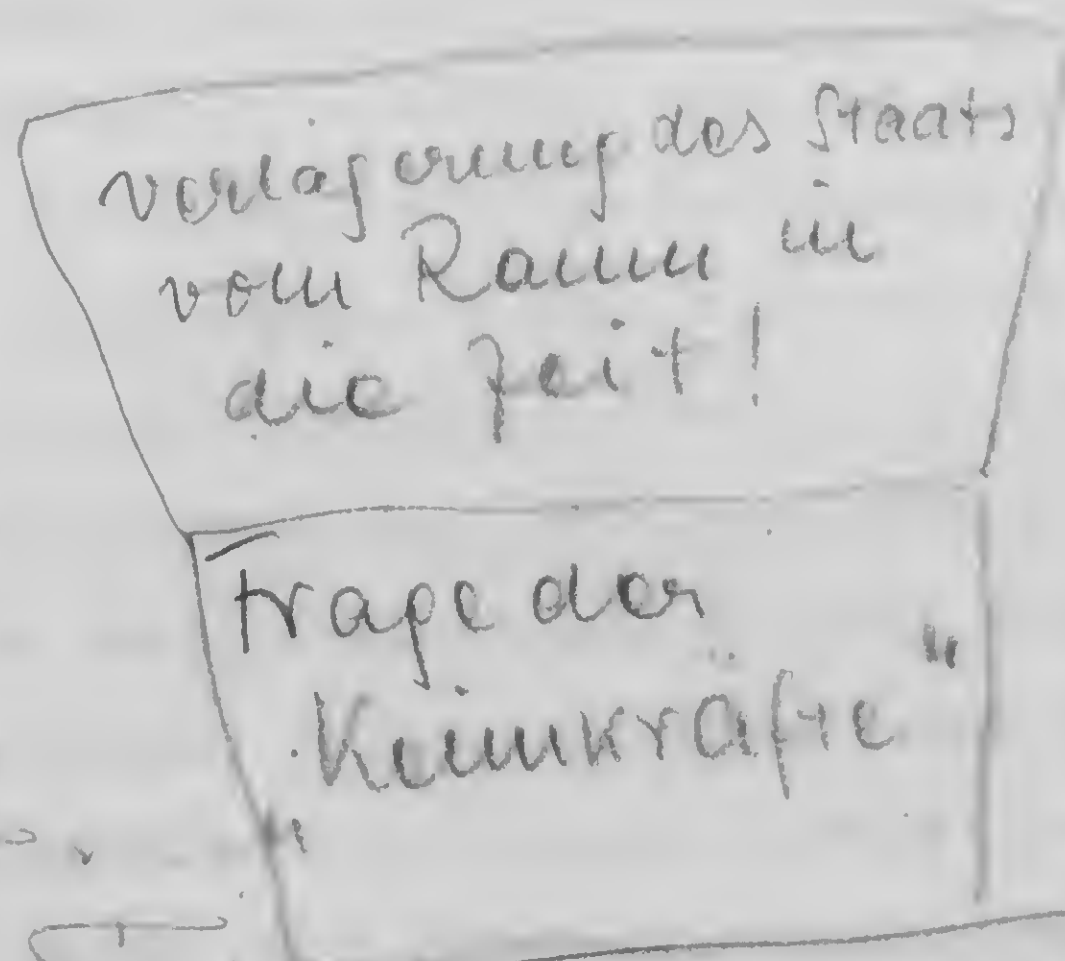 Verlagerung des Staats
vom Raum in
die Zeit!
Frage der
„Keimkräfte"